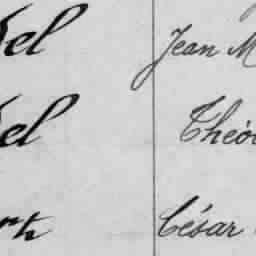 el Jean M
el Théo
rh César